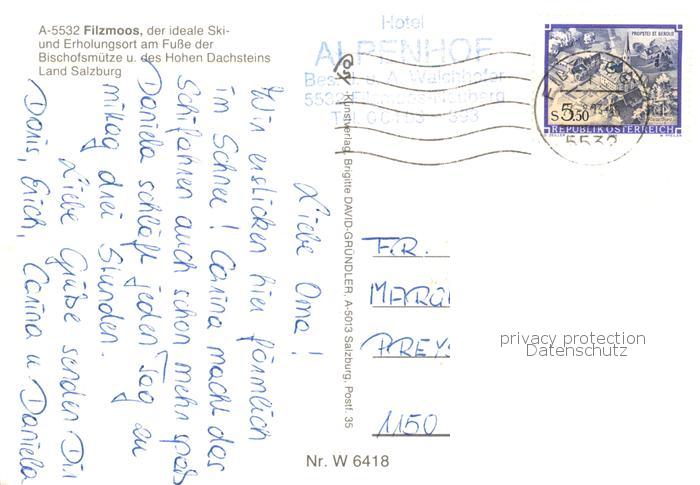 A-5532 Filzmoos, der ideale Ski-
und Erholungsort am Fuße der
Bischofsmütze u. des Hohen Dachsteins
Land Salzburg
Hotel
ALPENHOF
Bes. u. A. Walchhofer
5532 Filzmoos-Neuberg
PROPSTEI ST. GEROLD
S 5.50
REPUBLIK ÖSTERREICH
5532
Cosy Kunstverlag, Brigitte DAVID-GRÜNDLER, A-5013 Salzburg, Postf. 35
Liebe Oma!
Wir ersticken hier förmlich
im Schnee! Carina macht das
Schifahren auch schon mehr spaß
Daniela schläft jeden Tag zu
mittag drei Stunden.
Liebe Grüße senden Dir
Doris, Erich, Carina u. Daniela
FR.
MARG
PREY
1150
privacy protection
Datenschutz
Nr. W 6418